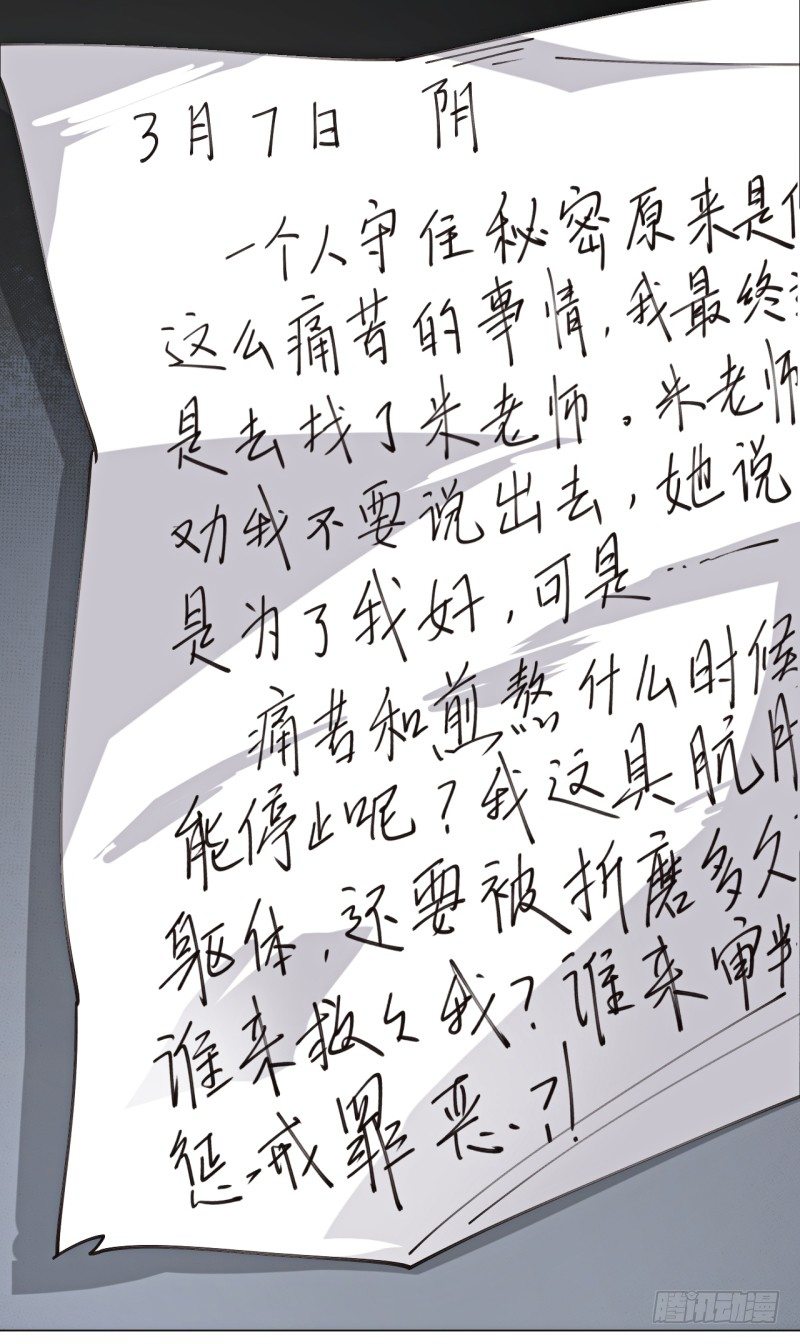 3月7日 阴
一个人守住秘密原来是
这么痛苦的事情,我最终
是去找了米老师。米老师
劝我不要说出去,她说
是为了我好,可是……
痛苦和煎熬什么时候
能停止呢?我这具肮
躯体,还要被折磨多久
谁来救久我?谁来审判
惩戒罪恶?!
腾讯动漫